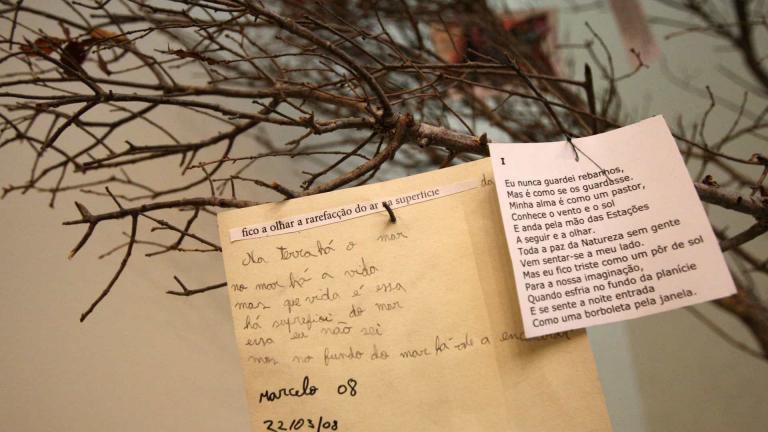 fico a olhar a rarefacção do ar na superfície
Na Terra há o mar
no mar há a vida
mas que vida é essa
há suprefisi do mar
essa eu não sei
mas no fundo do mar há-de a
Marcelo 08
22/03/08
I
Eu nunca guardei rebanhos,
Mas é como se os guardasse.
Minha alma é como um pastor,
Conhece o vento e o sol
E anda pela mão das Estações
A seguir e a olhar.
Toda a paz da Natureza sem gente
Vem sentar-se a meu lado.
Mas eu fico triste como um pôr de sol
Para a nossa imaginação,
Quando esfria no fundo da planície
E se sente a noite entrada
Como uma borboleta pela janela.